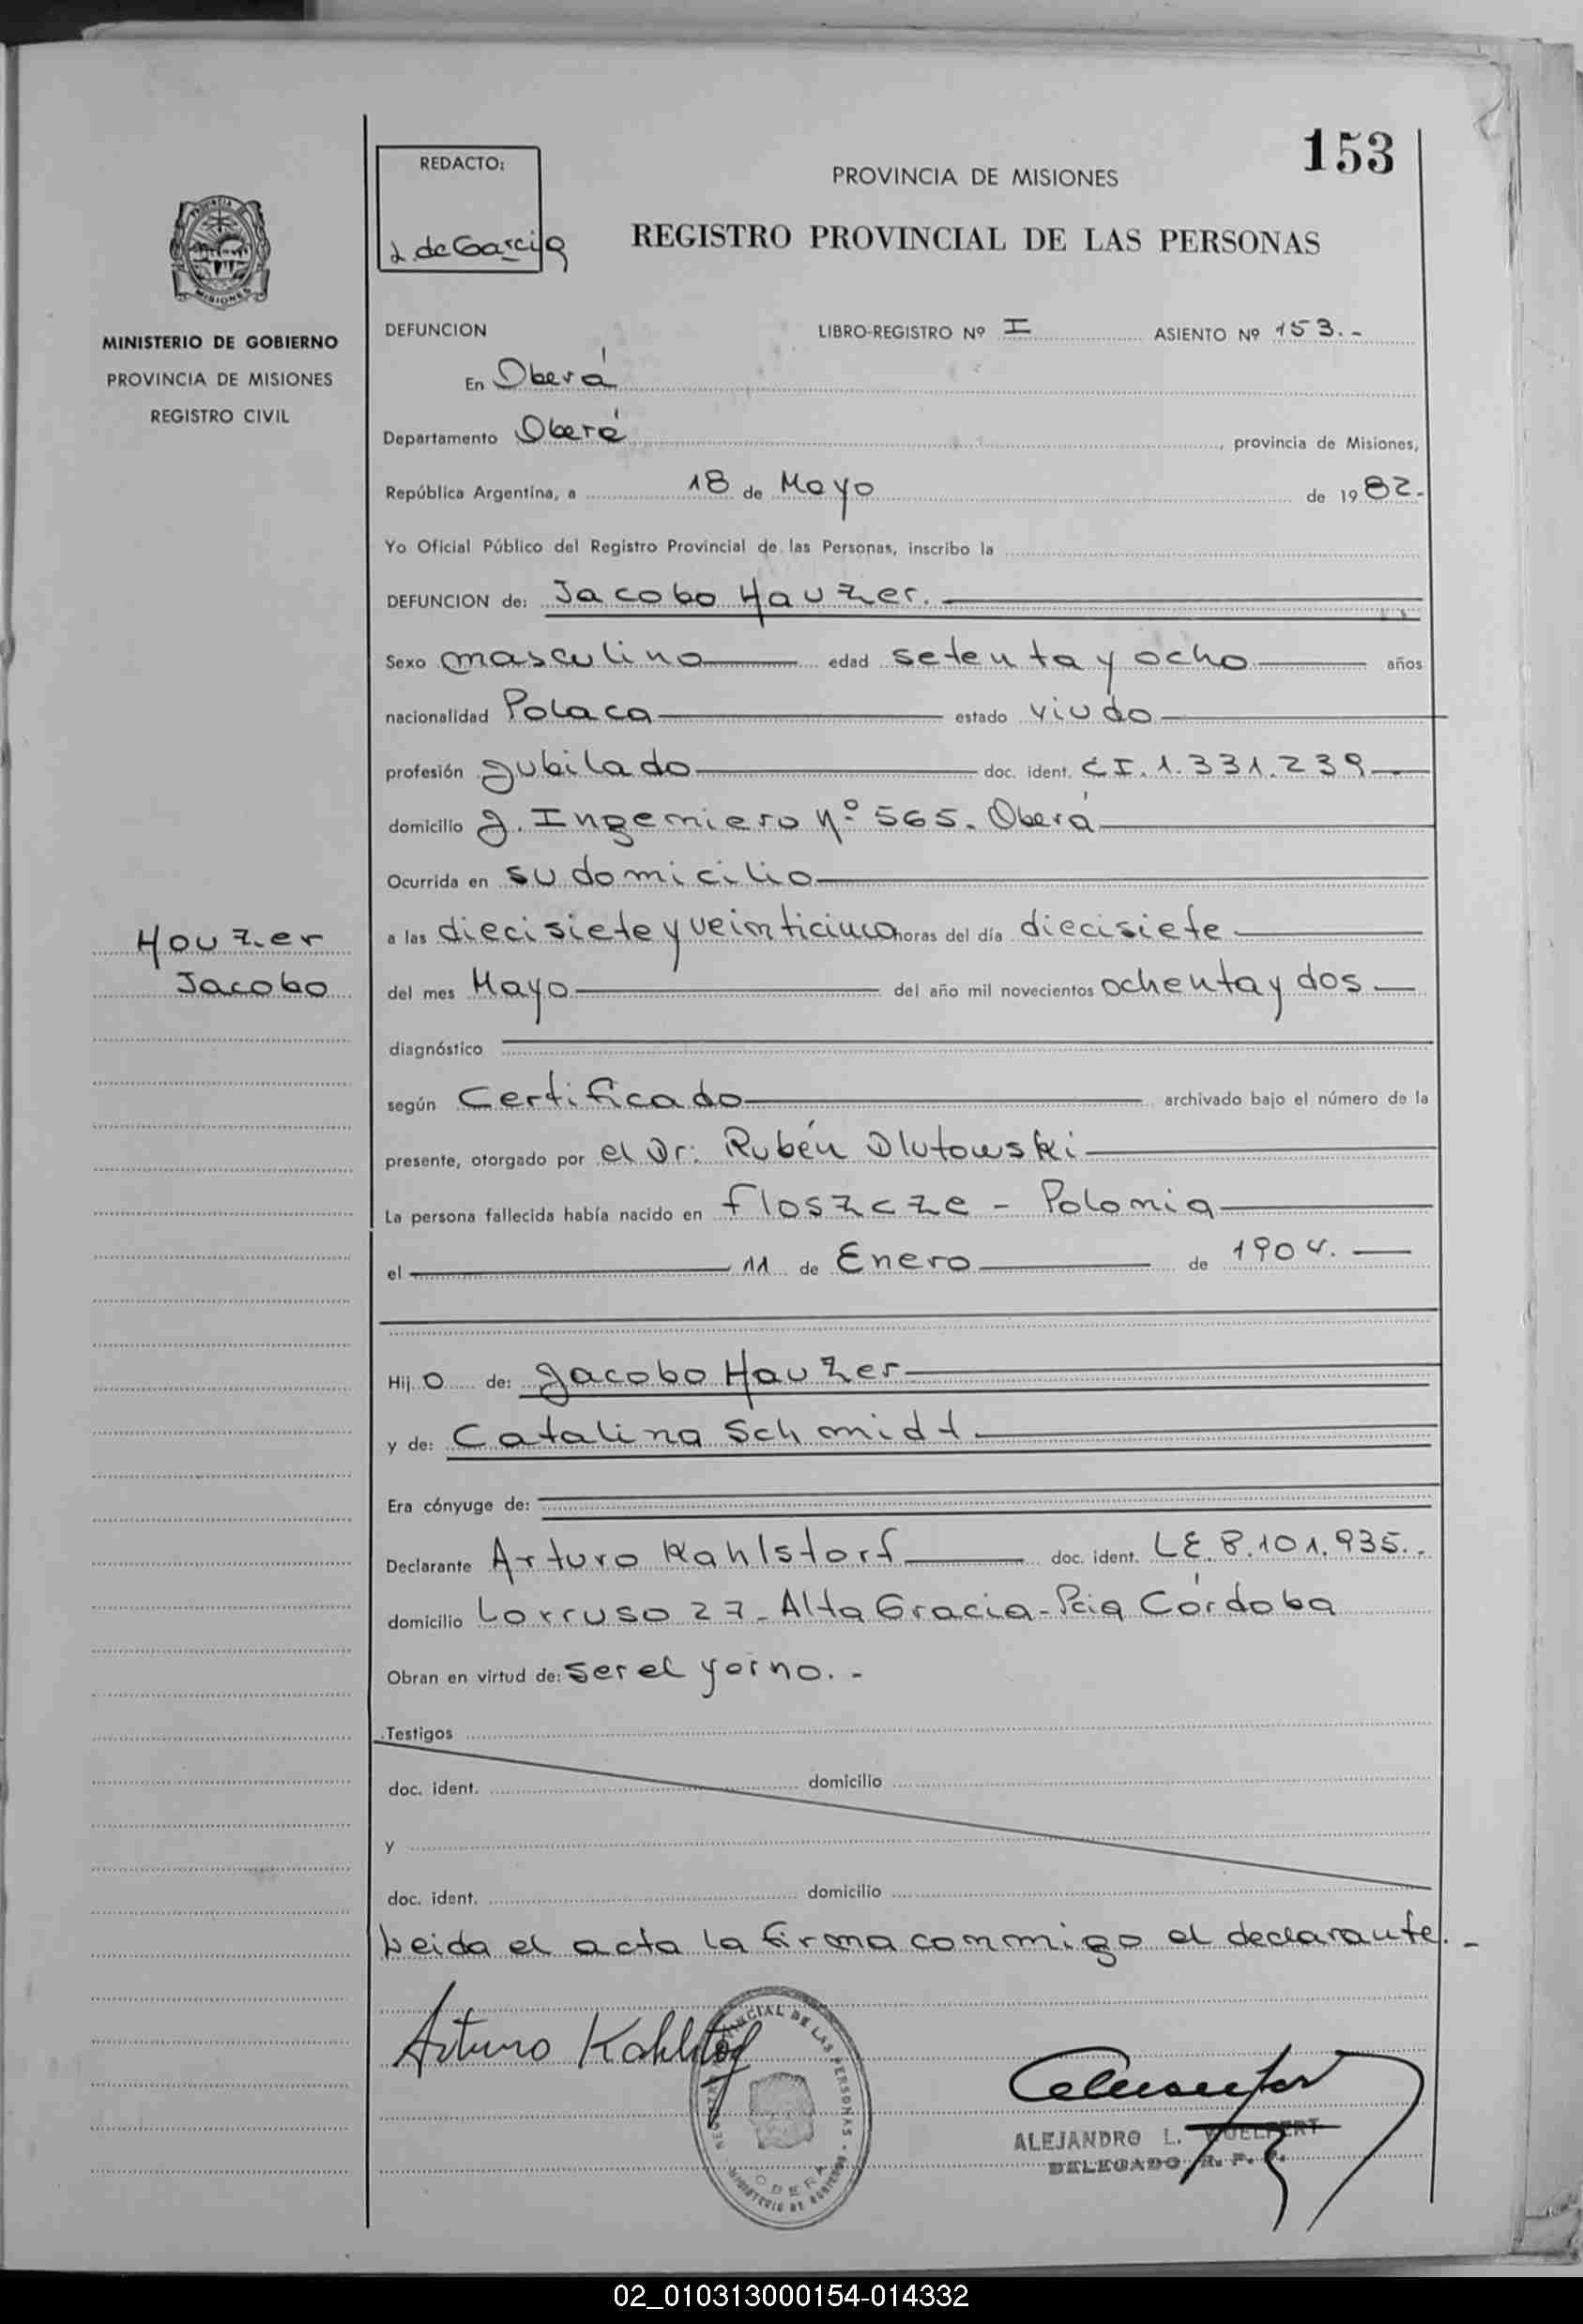 153
REDACTO:
PROVINCIA DE MISIONES
L. de Garcia
REGISTRO PROVINCIAL DE LAS PERSONAS
PROVINCIA
MISIONES
MINISTERIO DE GOBIERNO
PROVINCIA DE MISIONES
REGISTRO CIVIL
Hauzer
Jacobo
DEFUNCION LIBRO-REGISTRO Nº I ASIENTO Nº 153.-
En Oberá
Departamento Oberá, provincia de Misiones,
República Argentina, a 18 de Mayo de 1982.
Yo Oficial Público del Registro Provincial de las Personas, inscribo la
DEFUNCION de: Jacobo Hauzer.
Sexo masculino edad setenta y ocho años
nacionalidad Polaca estado viudo
profesión Jubilado doc. ident. C.I. 1.331.239
domicilio J. Ingemiero Nº 565. Oberá
Ocurrida en su domicilio
a las diecisiete y veinticinco horas del día diecisiete
del mes Mayo del año mil novecientos ochenta y dos
diagnóstico
según Certificado archivado bajo el número de la
presente, otorgado por el Dr. Rubén Dlutowski
La persona fallecida había nacido en Floszcze - Polonia
el 11 de Enero de 1904.
Hijo de: Jacobo Hauzer
y de: Catalina Schmidt
Era cónyuge de:
Declarante Arturo Kahlstorf doc. ident. L.E. 8.101.935..
domicilio Lorruso 27 - Alta Gracia - Pcia Córdoba
Obran en virtud de: ser el yerno. -
Testigos
doc. ident. domicilio
y
doc. ident. domicilio
Leida el acta la firma commigo el declarante. -
Arturo Kahlstorf
REGISTRO PROVINCIAL DE LAS PERSONAS
MINISTERIO DE GOBIERNO
OBERA
ALEJANDRO L. WUELPERT
DELEGADO R. P. P.
02_010313000154-014332